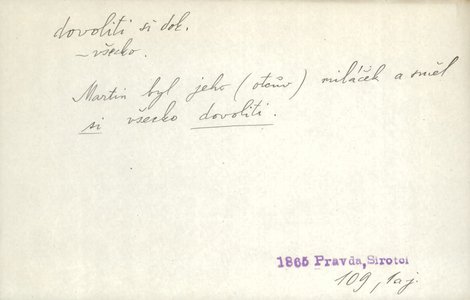 dovoliti si dok.
~ všecko.
Martin byl jeho (otcův) miláček a směl
si všecko dovoliti.
1865 Pravda, Sirotci
109, 1aj.